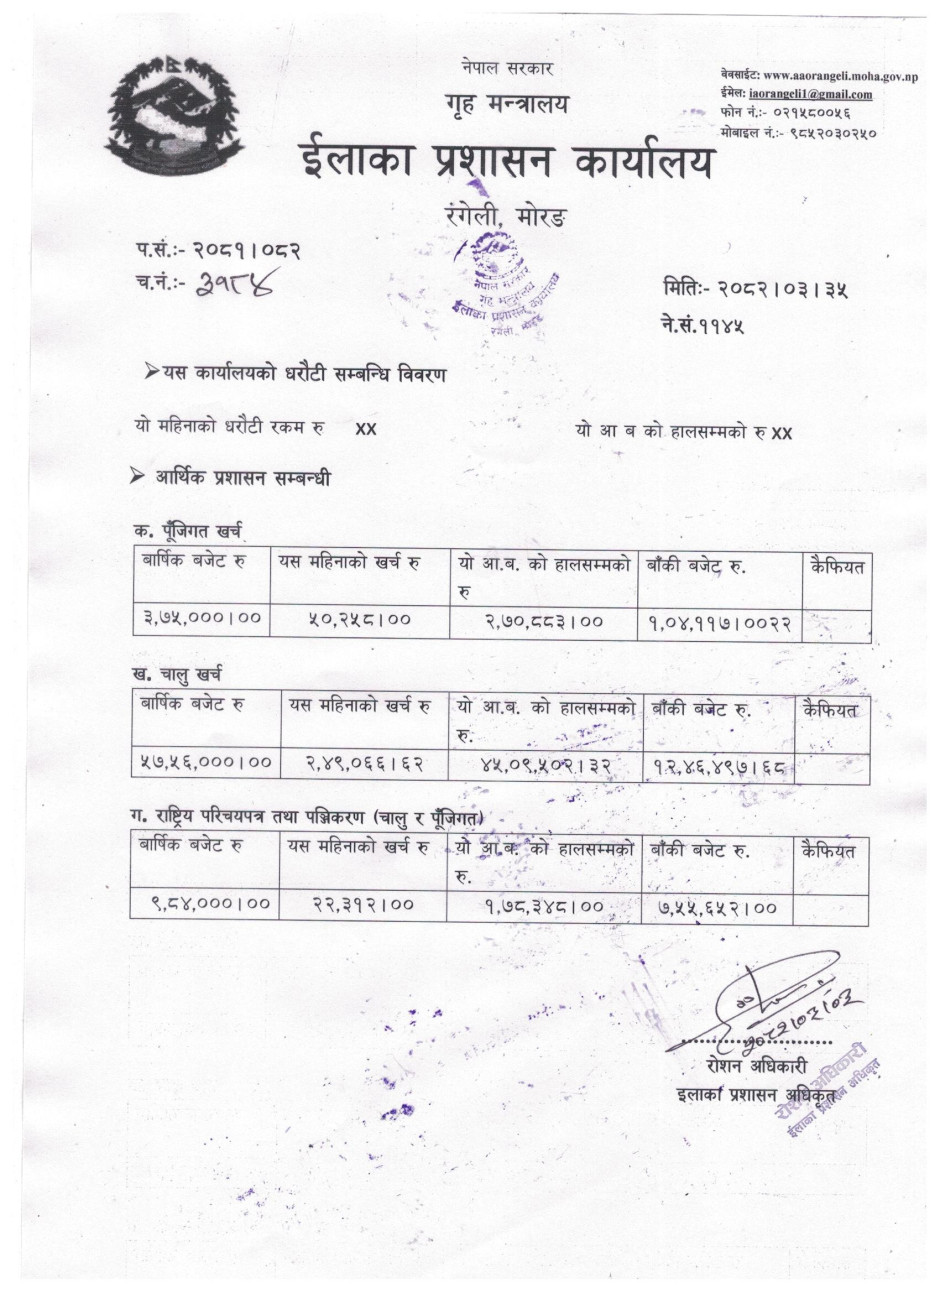 नेपाल सरकार
गृह मन्त्रालय
ईलाका प्रशासन कार्यालय
रंगेली, मोरङ
वेबसाईट: www.aaorangeli.moha.gov.np
ईमेल: iaorangeli1@gmail.com
फोन नं.:- ०२१५८००५६
मोबाइल नं.:- ९८५२०३०२५०
प.सं.:- २०८१।०८२
च.नं.:- ३१८४
नेपाल सरकार
गृह मन्त्रालय
ईलाका प्रशासन कार्यालय
रंगेली, मोरङ
मितिः- २०८२।०३।३५
ने.सं.११४५
➢यस कार्यालयको धरौटी सम्बन्धि विवरण
यो महिनाको धरौटी रकम रु XX यो आ ब को हालसम्मको रु XX
➢ आर्थिक प्रशासन सम्बन्धी
क. पूँजिगत खर्च
बार्षिक बजेट रु यस महिनाको खर्च रु यो आ.ब. को हालसम्मको रु बाँकी बजेट रु. कैफियत
३,७५,०००।०० ५०,२५८।०० २,७०,८८३।०० १,०४,११७।००२२
ख. चालु खर्च
बार्षिक बजेट रु यस महिनाको खर्च रु यो आ.ब. को हालसम्मको रु. बाँकी बजेट रु. कैफियत
५७,५६,०००।०० २,४९,०६६।६२ ४५,०९,५०२।३२ १२,४६,४९७।६८
ग. राष्ट्रिय परिचयपत्र तथा पञ्जिकरण (चालु र पूँजिगत)
बार्षिक बजेट रु यस महिनाको खर्च रु यो आ.ब. को हालसम्मको रु. बाँकी बजेट रु. कैफियत
९,८४,०००।०० २२,३१२।०० १,७८,३४८।०० ७,५५,६५२।००
रोशन अधिकारी
इलाका प्रशासन अधिकृत
रोशन अधिकारी
ईलाका प्रशासन अधिकृत